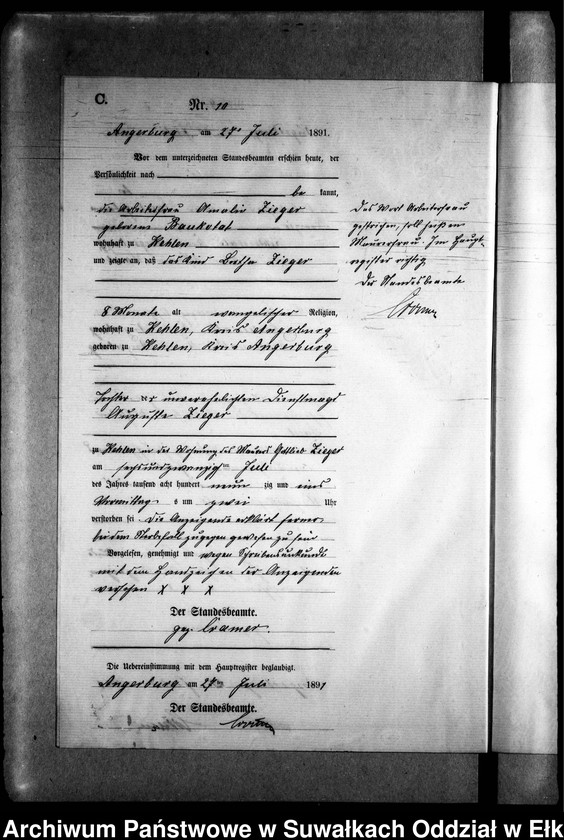 C.
Nr. 10
Angerburg am 27. Juli 1891.
Vor dem unterzeichneten Standesbeamten erschien heute, der
Persönlichkeit nach
be kannt,
die Arbeitsfrau Amalie Zieger
geborene Bauketat
wohnhaft zu Kehlen
und zeigte an, daß das Kind Bertha Zieger
8 Monate alt evangelischer Religion,
wohnhaft zu Kehlen, Kreis Angerburg
geboren zu Kehlen, Kreis Angerburg
Tochter der unverehelichten Dienstmagd
Auguste Zieger
zu Kehlen in der Wohnung des Maurers Gottlieb Zieger
am sechsundzwanzigsten Juli
des Jahres tausend acht hundert neun zig und eins
Vormittags um zwei Uhr
verstorben sei. Die Anzeigende erklärt ferner
bei dem Sterbefall zugegen gewesen zu sein
Vorgelesen, genehmigt und wegen Schreibensunkunde
mit dem Handzeichen der Anzeigenden
versehen X X X
Der Standesbeamte.
gez. Cramer.
Die Uebereinstimmung mit dem Hauptregister beglaubigt.
Angerburg am 27. Juli 1891
Der Standesbeamte.
Das Wort Arbeiterfrau
gestrichen, soll heißen
Maurerfrau. Im Haupt-
register richtig
Der Standesbeamte
Archiwum Państwowe w Suwałkach Oddział w Ełku